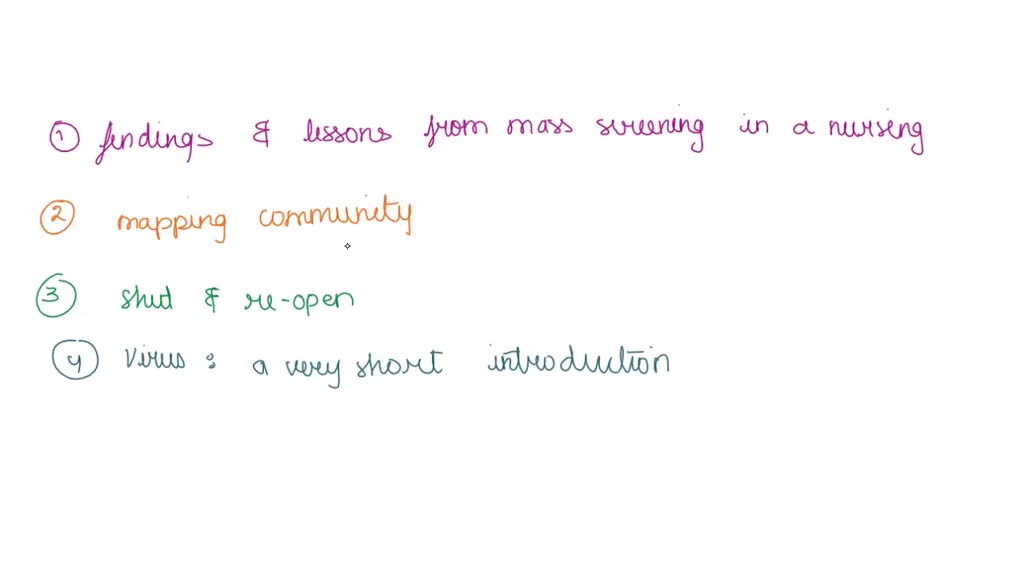 ① findings & lessons from mass screening in a nursing
② mapping community
③ shut & re-open
④ Virus : a very short introduction